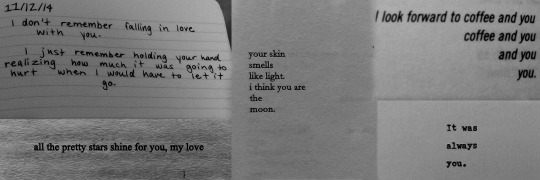 11/12/14
I don't remember falling in love
with you.
I just remember holding your hand
realizing how much it was going to
hurt when I would have to let it
go.
all the pretty stars shine for you, my love
your skin
smells
like light.
i think you are
the
moon.
I look forward to coffee and you
coffee and you
and you
you.
It was
always
you.